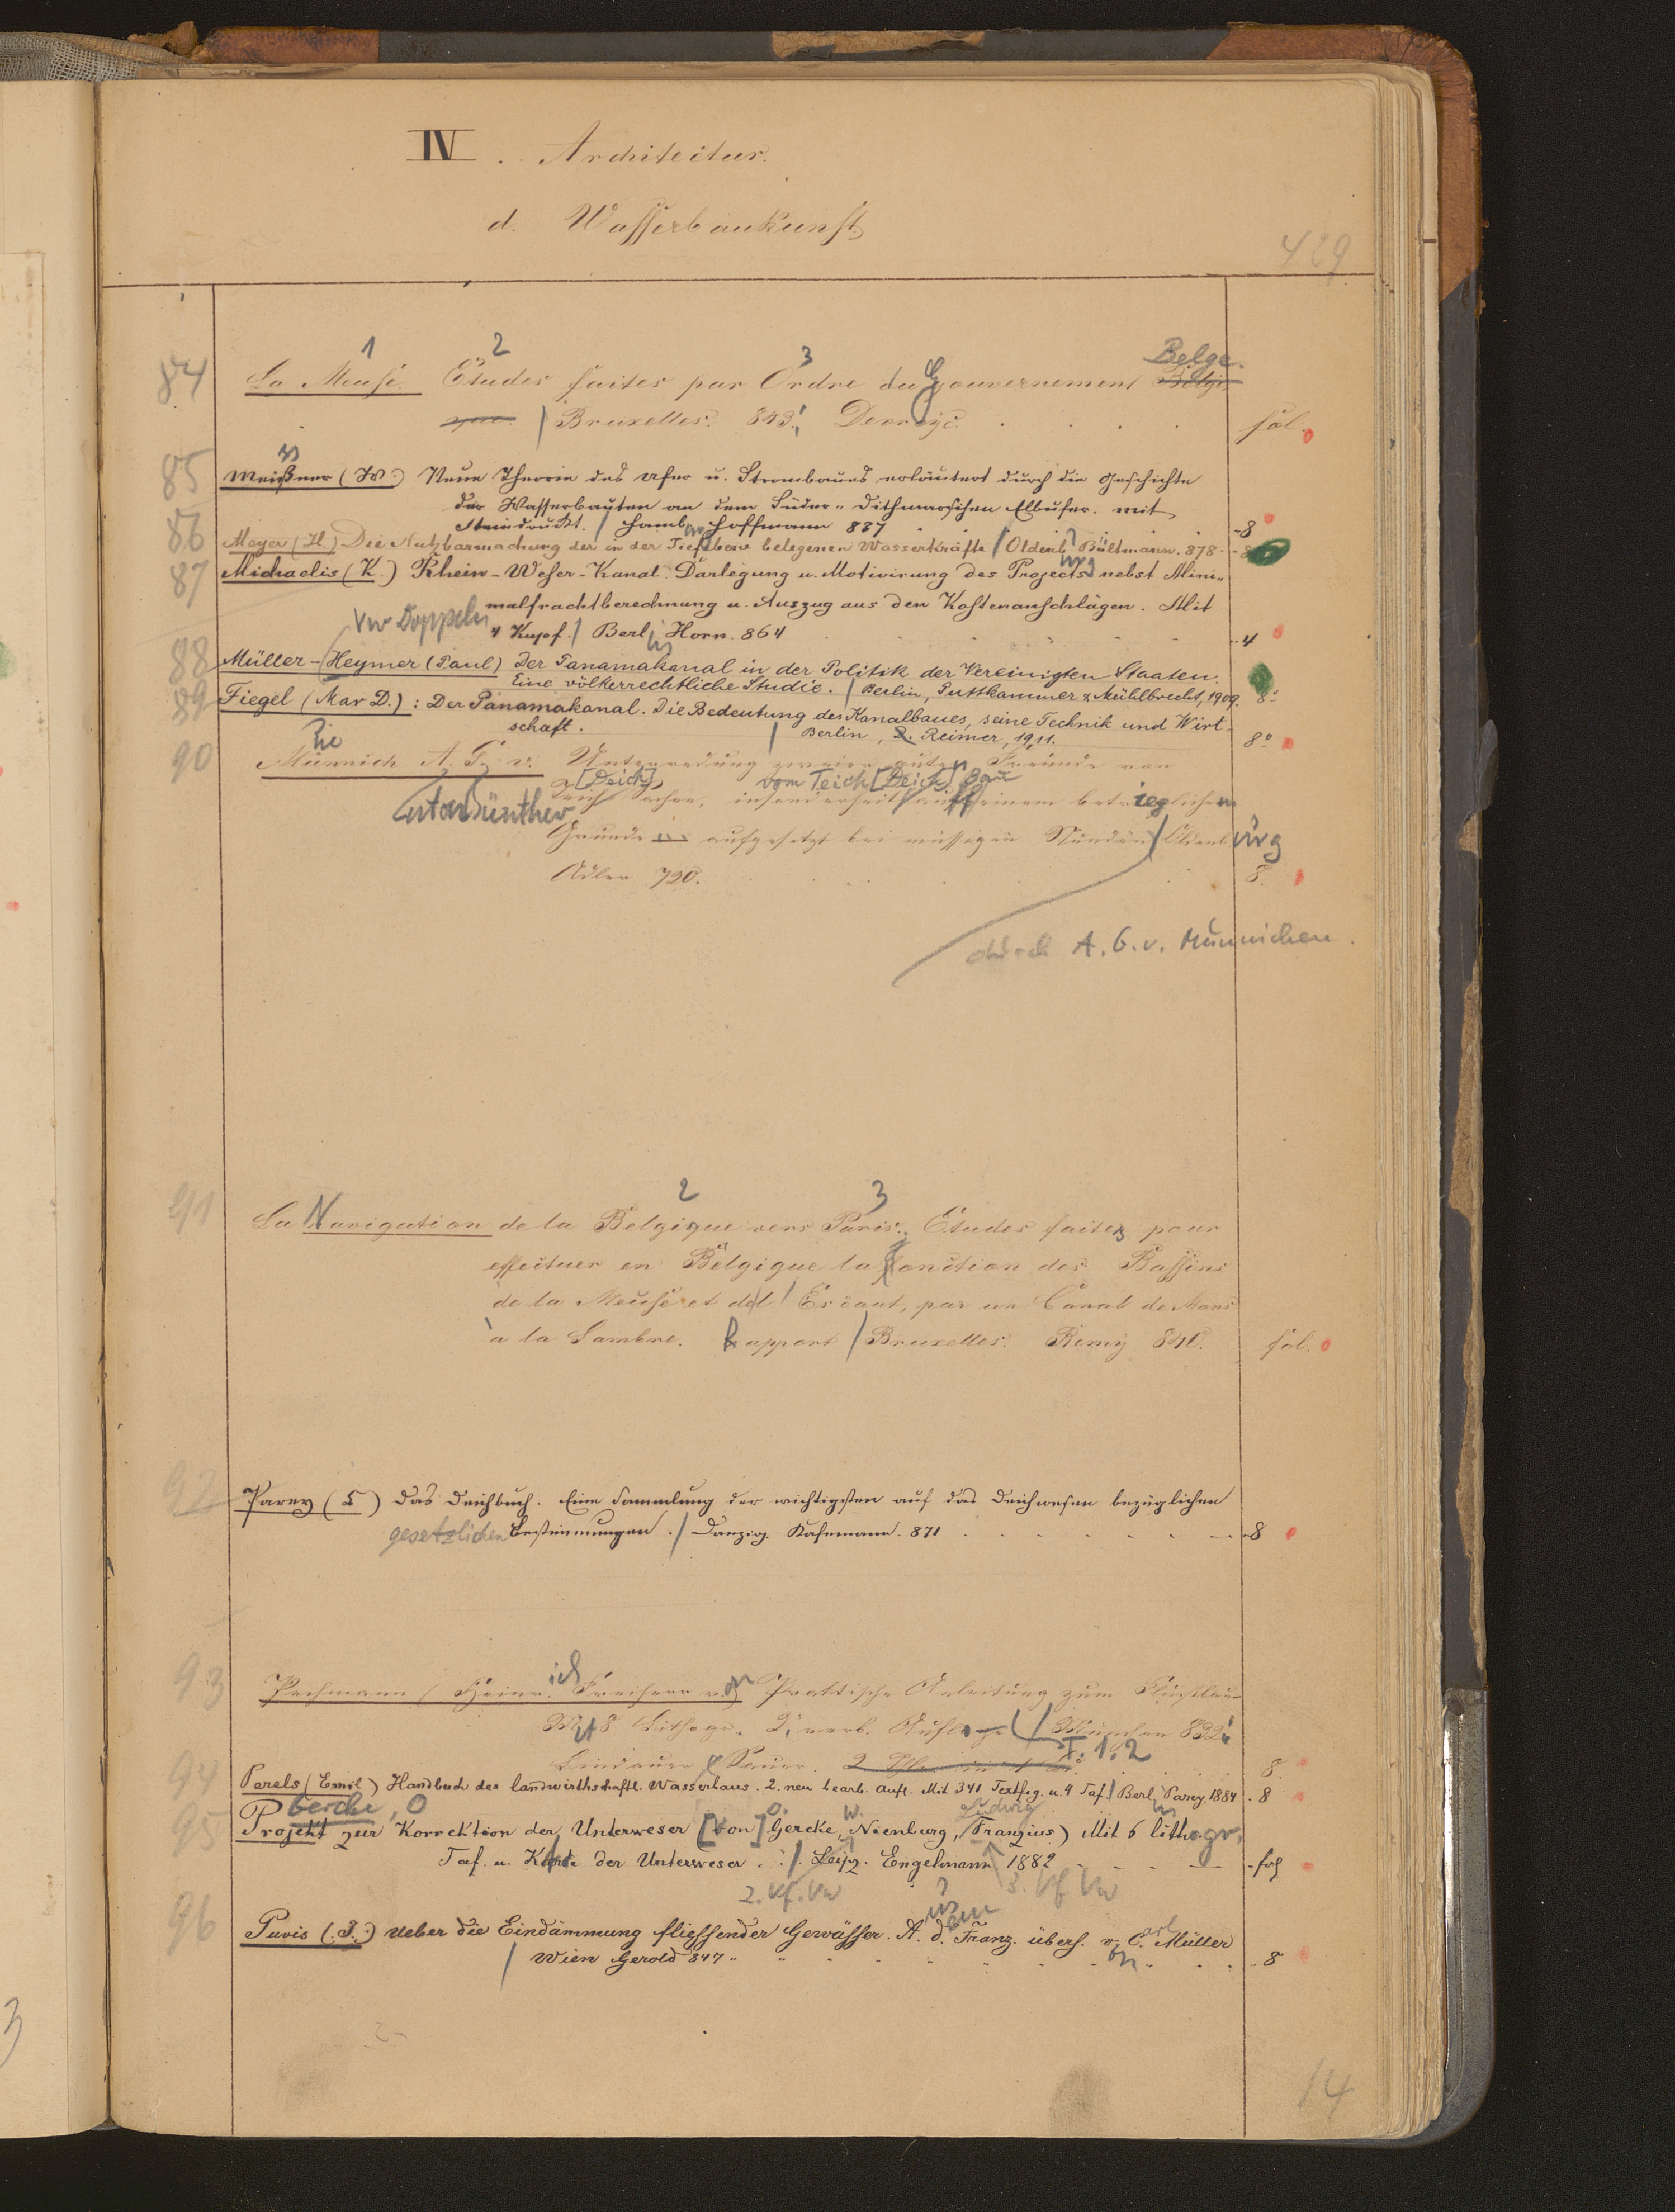 IV. Architectur.
d. Wasserbaukunst
429
1 2 3 Belge.
84 La Meuse. Études faites par Ordre du Gouvernement Belgi-
que. / Bruxelles. 843. Devroyé. fol.
85 Meißner (W.) Neue Theorie des Ufer u. Strombaues erläutert durch die Geschichte
der Wasserbauten an dem Süder-Dithmarschen Elbufer. mit
Steindruckt. / Hamb. Hoffmann 837 8
86 Meyer (H.) Die Nutzbarmachung der in der Tiefebene belegenen Wasserkräfte / Oldenb. Bültmann. 878. 8
87 Michaelis (K.) Rhein-Weser-Kanal. Darlegung u. Motivirung des Projects nebst Mini-
malfrachtberechnung u. Auszug aus den Kostenanschlägen. Mit
Vw Doppeln 4 Kupf. / Berl. Horn. 864 4
88 Müller-Heymer (Paul) Der Panamakanal in der Politik der Vereinigten Staaten.
Eine völkerrechtliche Studie. / Berlin, Puttkammer & Mühlbrecht, 1909. 8°
89 Fiegel (Mar D.): Der Panamakanal. Die Bedeutung des Kanalbaues, seine Technik und Wirt-
schaft. / Berlin, D. Reimer, 1911. 8°
90 Münnich A. G. v. Unterredung zweier guter Freunde von
[Deich] vom Teich [Deich] Bau
Anton Günther Teich Sachen, insonderheit auf einem betrieglichen
Grunde aufgesetzt bei müssigen Stunden / Oldenburg
Adler 720. 8.
durch A. G. v. Münnichen.
2 3
91 La Navigation de la Belgique vers Paris. Études faites pour
effectuer en Belgique la Jonction des Bassins
de la Meuse et de l'Escaut, par un Canal de Mons
à la Sambre. Rapport / Bruxelles. Remy 840. fol.
92 Parey (C) Das Deichbuch. Eine Sammlung der wichtigsten auf das Deichwesen bezüglichen
gesetzlichen Bestimmungen. / Danzig. Kafemann. 871 8
93 Pechmann (Heinrich Freiherr von Praktische Anleitung zum Flussbau
Mit 8 Lithogr. 2. verb. Auflage / München 832
Lindauer, Sauer. T. 1. 2 8.
94 Perels (Emil) Handbuch des landwirthschaftl. Wasserbaus. 2. neu bearb. Aufl. Mit 341 Textfig. u. 4 Taf. / Berl. Parey. 1884. 8
Gercke, O O. W. Ludwig
95 Projekt zur Korrektion der Unterweser [von] Gercke, Nienburg, Franzius) Mit 6 lithogr.
Taf. u. Karte der Unterweser. / Leipz. Engelmann 1882 fol
2. Vf. Vw 3. Vf Vw
96 Puvis (J.) Ueber die Eindämmung fliessender Gewässer. A. d. Franz. übers. v. Carl Müller
/ Wien Gerold 847 8
14